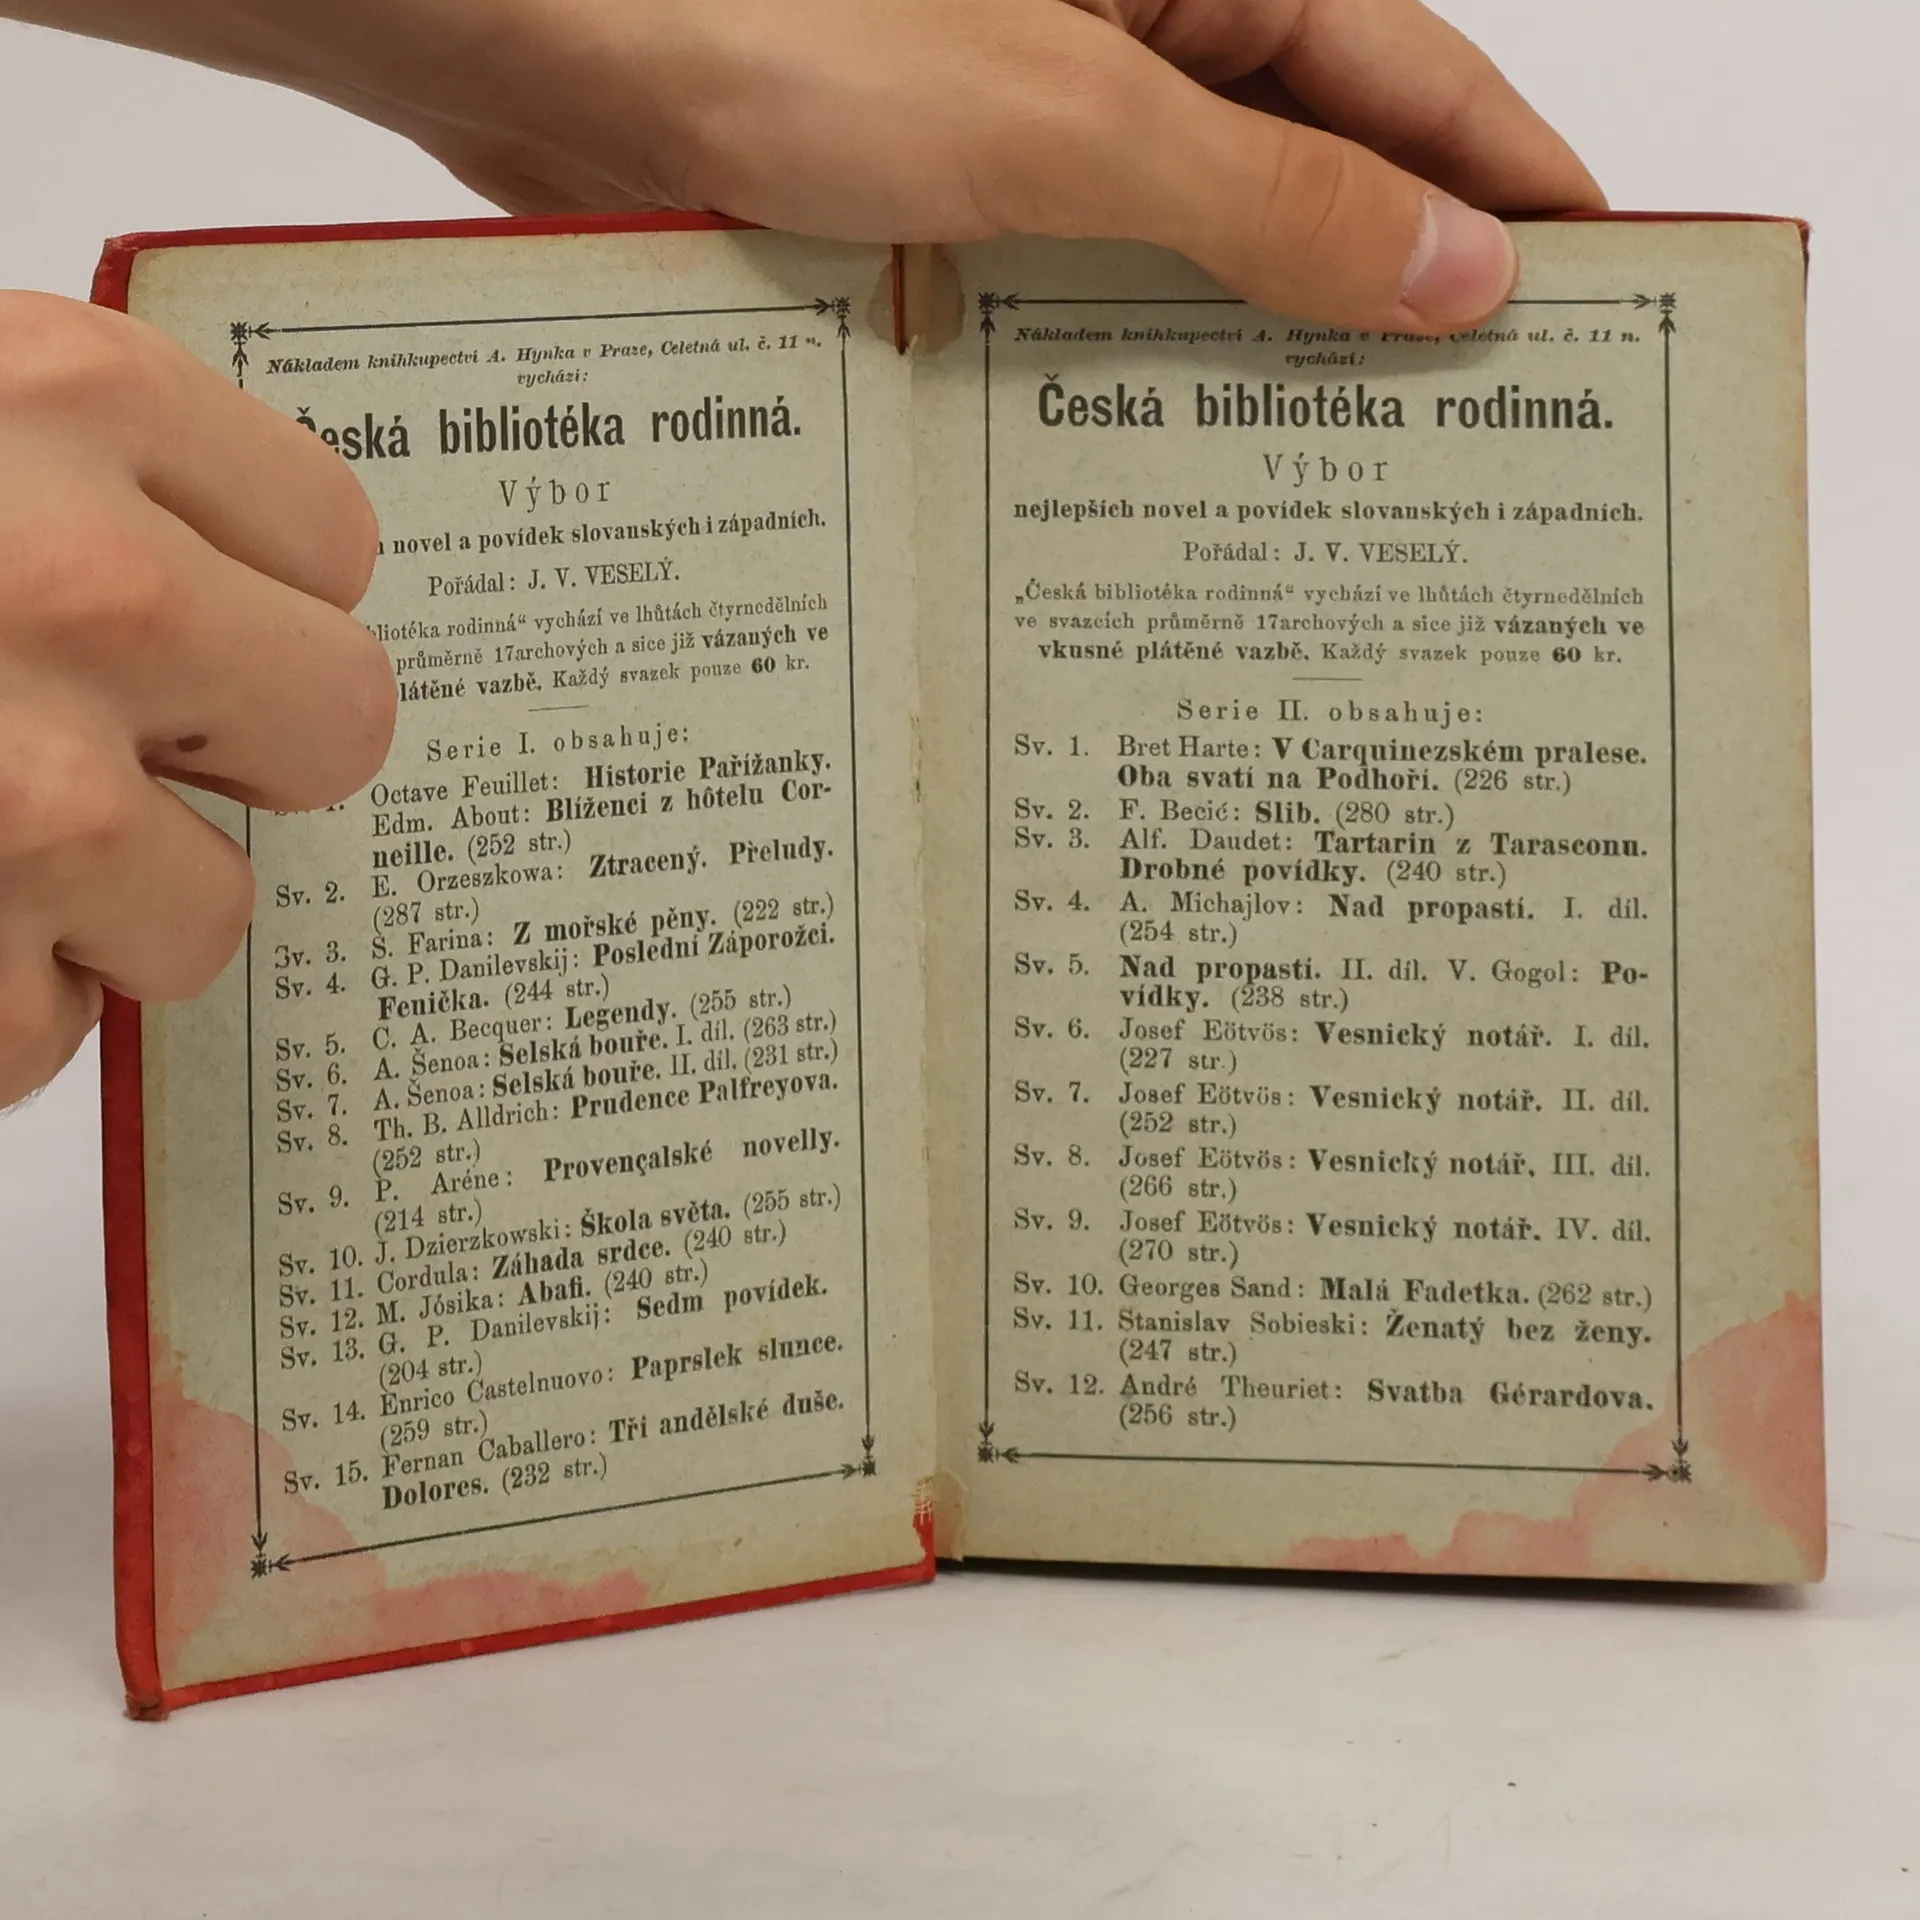 Nákladem knihkupectví A. Hynka v Praze, Celetná ul. č. 11 n.
vychází:
Česká bibliotéka rodinná.
Výbor
novel a povídek slovanských i západních.
Pořádal: J. V. VESELÝ.
rodinná“ vychází ve lhůtách čtyrnedělních
průměrně 17archových a sice již vázaných ve
vazbě. Každý svazek pouze 60 kr.
Serie I. obsahuje:
Octave Feuillet: Historie Pařížanky.
Edm. About: Blíženci z hôtelu Cor-
neille. (252 str.)
Sv. 2. E. Orzeszkowa: Ztracený. Přeludy.
(287 str.)
Sv. 3. S. Farina: Z mořské pěny. (222 str.)
Sv. 4. G. P. Danilevskij: Poslední Záporožci.
Fenička. (244 str.)
Sv. 5. C. A. Becquer: Legendy. (255 str.)
Sv. 6. A. Šenoa: Selská bouře. I. díl. (263 str.)
Sv. 7. A. Šenoa: Selská bouře. II. díl. (231 str.)
Sv. 8. Th. B. Alldrich: Prudence Palfreyova.
(252 str.)
Sv. 9. P. Aréne: Provençalské novelly.
(214 str.)
Sv. 10. J. Dzierzkowski: Škola světa. (255 str.)
Sv. 11. Cordula: Záhada srdce. (240 str.)
Sv. 12. M. Jósika: Abafi. (240 str.)
Sv. 13. G. P. Danilevskij: Sedm povídek.
(204 str.)
Sv. 14. Enrico Castelnuovo: Paprslek slunce.
(259 str.)
Sv. 15. Fernan Caballero: Tři andělské duše.
Dolores. (232 str.)
Nákladem knihkupectví A. Hynka v Praze, Celetná ul. č. 11 n.
vychází:
Česká bibliotéka rodinná.
Výbor
nejlepších novel a povídek slovanských i západních.
Pořádal: J. V. VESELÝ.
„Česká bibliotéka rodinná“ vychází ve lhůtách čtyrnedělních
ve svazcích průměrně 17archových a sice již vázaných ve
vkusné plátěné vazbě. Každý svazek pouze 60 kr.
Serie II. obsahuje:
Sv. 1. Bret Harte: V Carquinezském pralese.
Oba svatí na Podhoří. (226 str.)
Sv. 2. F. Becić: Slib. (280 str.)
Sv. 3. Alf. Daudet: Tartarin z Tarasconu.
Drobné povídky. (240 str.)
Sv. 4. A. Michajlov: Nad propastí. I. díl.
(254 str.)
Sv. 5. Nad propastí. II. díl. V. Gogol: Po-
vídky. (238 str.)
Sv. 6. Josef Eötvös: Vesnický notář. I. díl.
(227 str.)
Sv. 7. Josef Eötvös: Vesnický notář. II. díl.
(252 str.)
Sv. 8. Josef Eötvös: Vesnický notář. III. díl.
(266 str.)
Sv. 9. Josef Eötvös: Vesnický notář. IV. díl.
(270 str.)
Sv. 10. Georges Sand: Malá Fadetka. (262 str.)
Sv. 11. Stanislav Sobieski: Ženatý bez ženy.
(247 str.)
Sv. 12. André Theuriet: Svatba Gérardova.
(256 str.)